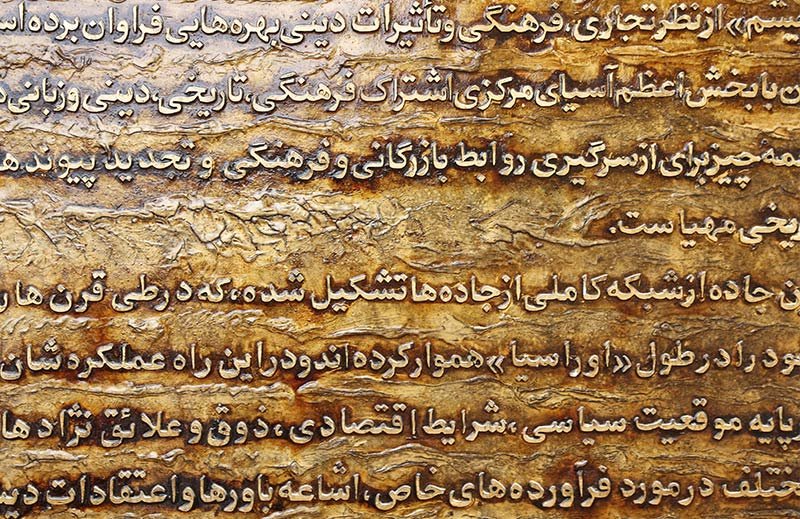 یشم» از نظر تجاری، فرهنگی و تأثیرات دینی بهره‌هایی فراوان برده اس
ن با بخش اعظم آسیای مرکزی اشتراک فرهنگی، تاریخی، دینی و زبانی د
مه چیز برای از سرگیری روابط بازرگانی و فرهنگی و تجدید پیوندها
ریخی مهیا ست.
ن جاده از شبکه کاملی از جاده‌ها تشکیل شده، که در طی قرن ها ر
ود را در طول «اوراسیا» هموار کرده اند و در این راه عملکره شان
ر پایه موقعیت سیاسی، شرایط اقتصادی، ذوق و علائق نژادها
ختلف در مورد فرآورده های خاص، اشاعه باورها و اعتقادات دین